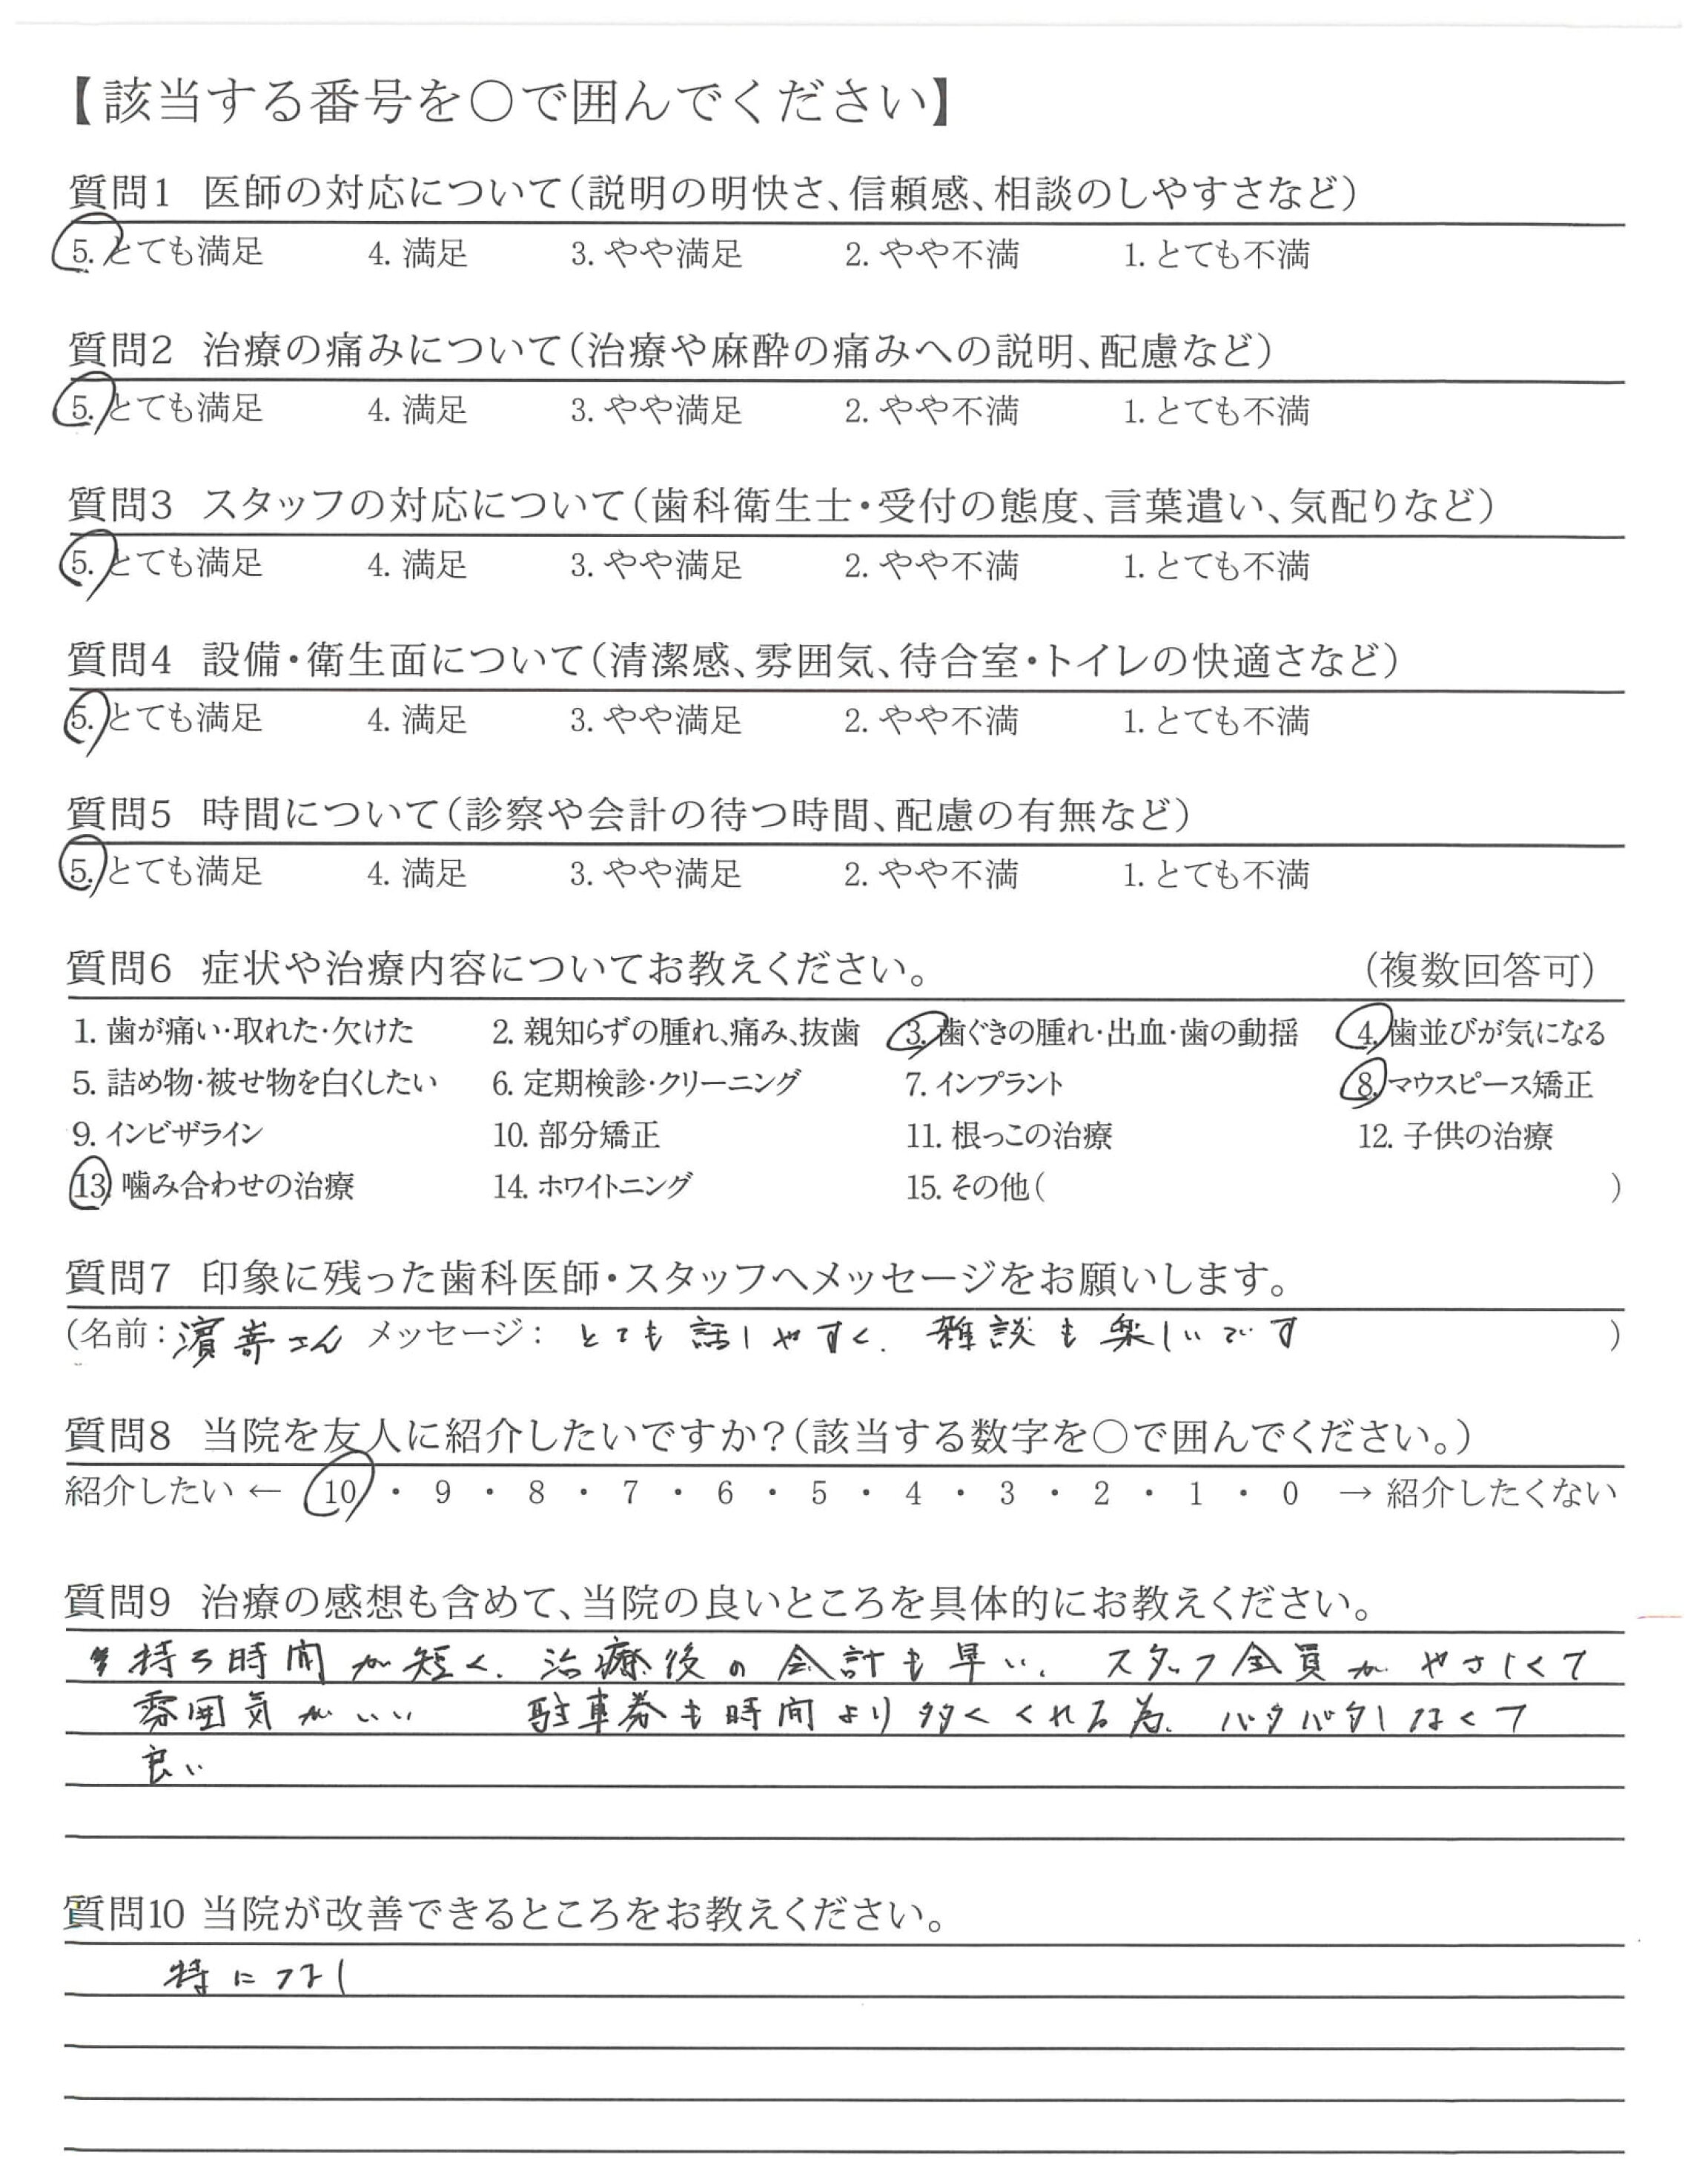 【該当する番号を○で囲んでください】
質問1 医師の対応について(説明の明快さ、信頼感、相談のしやすさなど)
5. とても満足 4. 満足 3. やや満足 2. やや不満 1. とても不満
質問2 治療の痛みについて(治療や麻酔の痛みへの説明、配慮など)
5. とても満足 4. 満足 3. やや満足 2. やや不満 1. とても不満
質問3 スタッフの対応について(歯科衛生士・受付の態度、言葉遣い、気配りなど)
5. とても満足 4. 満足 3. やや満足 2. やや不満 1. とても不満
質問4 設備・衛生面について(清潔感、雰囲気、待合室・トイレの快適さなど)
5. とても満足 4. 満足 3. やや満足 2. やや不満 1. とても不満
質問5 時間について(診察や会計の待つ時間、配慮の有無など)
5. とても満足 4. 満足 3. やや満足 2. やや不満 1. とても不満
質問6 症状や治療内容についてお教えください。 (複数回答可)
1. 歯が痛い・取れた・欠けた 2. 親知らずの腫れ、痛み、抜歯 3. 歯ぐきの腫れ・出血・歯の動揺 4. 歯並びが気になる
5. 詰め物・被せ物を白くしたい 6. 定期検診・クリーニング 7. インプラント 8. マウスピース矯正
9. インビザライン 10. 部分矯正 11. 根っこの治療 12. 子供の治療
13. 噛み合わせの治療 14. ホワイトニング 15. その他( )
質問7 印象に残った歯科医師・スタッフへメッセージをお願いします。
(名前: 濵嵜さん メッセージ: とても話しやすく、雑談も楽しいです )
質問8 当院を友人に紹介したいですか?(該当する数字を○で囲んでください。)
紹介したい ← 10 ・ 9 ・ 8 ・ 7 ・ 6 ・ 5 ・ 4 ・ 3 ・ 2 ・ 1 ・ 0 → 紹介したくない
質問9 治療の感想も含めて、当院の良いところを具体的にお教えください。
持ち時間が短く、治療後の会計も早い、スタッフ全員がやさしくて
雰囲気がいい 駐車券も時間より多くくれる為、バタバタしなくて
良い
質問10 当院が改善できるところをお教えください。
特になし